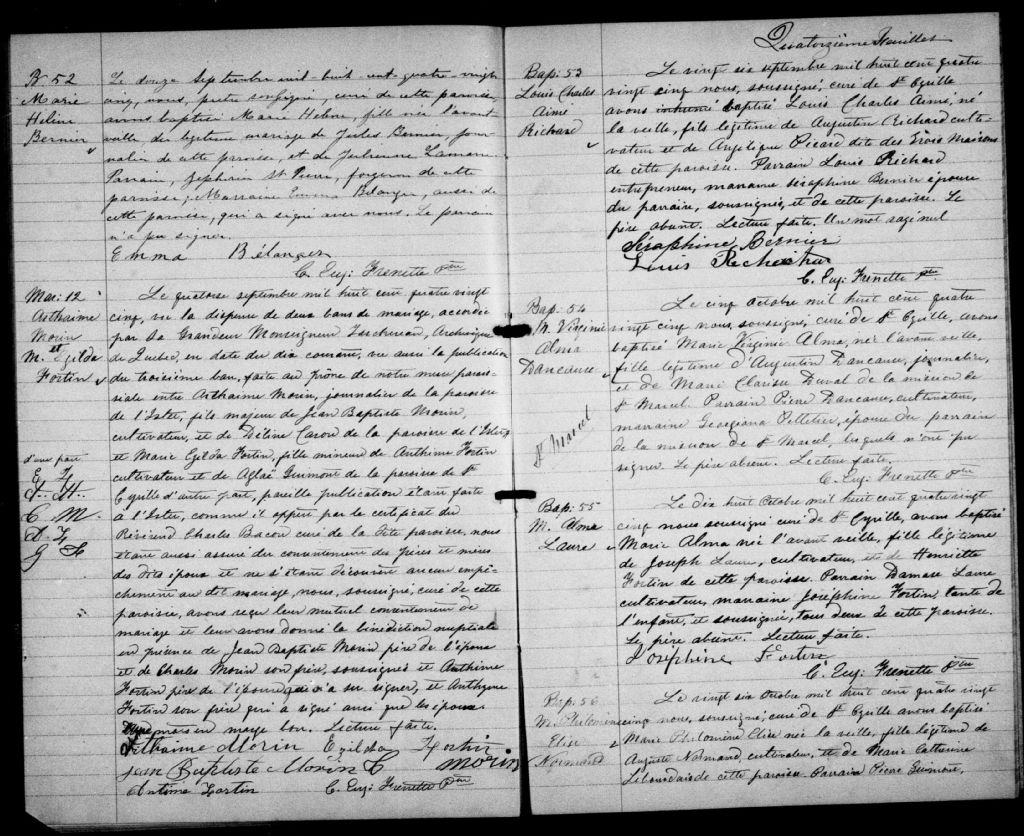 B 52
Marie
Hélène
Bernier
Le douze Septembre mil-huit-cent-quatre-vingt
cinq, nous, prêtre soussigné, curé de cette paroisse,
avons baptisé Marie Hélène, fille née l'avant
veille, du légitime mariage de Jules Bernier, jour-
nalier de cette paroisse, et de Julienne
Parrain, Zépherin St Pierre, forgeron de cette
paroisse; Marraine Emma Bélanger, aussi de
cette paroisse, qui a signé avec nous. Le parrain
n'a pu signer.
Emma Bélanger
C. Eug: Frenette Ptre
Mar: 12
Arthaime
Morin
et
M. Egilda
Fortin
Le quatorze septembre mil huit cent quatre vingt
cinq, vu la dispense de deux bans de mariage, accordée
par Sa Grandeur Monseigneur Taschereau, Archevêque
de Québec, en date du dix courant, vu aussi la publication
du troisième ban, faite au prône de notre messe parois-
siale entre Arthaime Morin, journalier de la paroisse
de l'Islet, fils majeur de Jean Baptiste Morin,
cultivateur, et de Déline Caron de la paroisse de l'Islet
d'une part
et Marie Egilda Fortin, fille mineure de Anthime Fortin
cultivateur et de Aglaé Guimont de la paroisse de St
Cyrille d'autre part, pareille publication étant faite
à l'Islet, comme il appert par le certificat du
Révérend Charles Bacon curé de la dite paroisse, nous
étant aussi assuré du consentement des pères et mères
des dits époux et ne s'étant découvert aucun empê-
chement au dit mariage, nous, soussigné, curé de cette
paroisse, avons reçu leur mutuel consentement de
mariage et leur avons donné la bénédiction nuptiale
en présence de Jean Baptiste Morin père de l'époux
et de Charles Morin son frère, soussignés et Anthime
Fortin père de l'épouse qui a su signer, et Anthyme
Fortin son frère qui a signé ainsi que les époux.
en marge bon. Lecture faite.
Arthaime Morin Egilda Fortin
Jean Baptiste Morin C Morin
Antime Fortin C. Eug: Frenette Ptre
E. F.
C. M.
G F
Quatorzième Feuillet
Bap: 53
Louis Charles
Aimé
Richard
Le vingt six septembre mil huit cent quatre
vingt cinq nous, soussigné, curé de St Cyrille
avons baptisé Louis Charles Aimé, né
la veille, fils légitime de Augustin Richard culti-
vateur et de Angélique Picard dite des Trois Maisons
de cette paroisse. Parrain Louis Richard
entrepreneur, marraine Séraphine Bernier épouse
du parrain, soussignés, et de cette paroisse. Le
père absent. Lecture faite. Un mot rayé nul
Séraphine Bernier
Louis Richard
C. Eug: Frenette Ptre
Bap: 54
M. Virginie
Alma
Dancause
St Marcel
Le cinq Octobre mil huit cent quatre
vingt cinq nous, soussigné, curé de St Cyrille, avons
baptisé Marie Virginie Alma, née l'avant veille,
fille légitime d'Augustin Dancause, journalier,
et de Marie Clarisse Duval de la mission de
St Marcel. Parrain Pierre Dancause, cultivateur,
marraine Georgiana Pelletier, épouse du parrain
de la mission de St Marcel, lesquels n'ont pu
signer. Le père absent. Lecture faite.
C. Eug: Frenette Ptre
Bap: 55
M. Alma
Laure
Le dix huit Octobre mil huit cent quatre vingt
cinq nous soussigné curé de St Cyrille, avons baptisé
Marie Alma née l'avant veille, fille légitime
de Joseph Laure, cultivateur, et de Henriette
Fortin de cette paroisse. Parrain Damase Laure
cultivateur, marraine Joséphine Fortin tante de
l'enfant, et soussignée, tous deux de cette paroisse.
Le père absent. Lecture faite.
Joséphine Fortin
C. Eug: Frenette Ptre
Bap: 56
M. Philomène
Elise
Normand
Le vingt six Octobre mil huit cent quatre vingt
cinq nous, soussigné, curé de St Cyrille avons baptisé
Marie Philomène Elise née la veille, fille légitime de
Auguste Normand, cultivateur, et de Marie Catherine
Lebourdais de cette paroisse. Parrain Pierre Guimont,